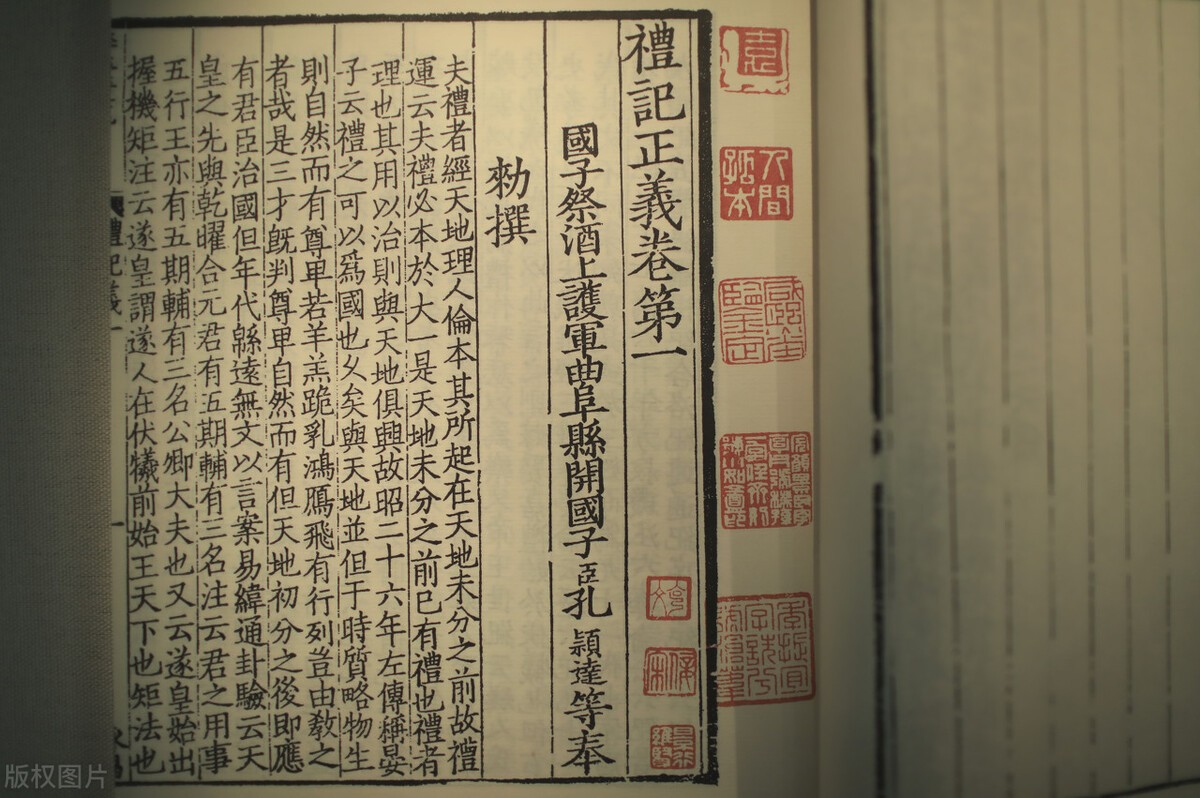 禮記正義卷第一
國子祭酒上護軍曲阜縣開國子臣孔穎達等奉
勑撰
夫禮者經天地理人倫本其所起在天地未分之前故禮
運云夫禮必本於大一是天地未分之前已有禮也禮者
理也其用以治則與天地俱興故昭二十六年左傳稱晏
子云禮之可以爲國也乆矣與天地並但于時質略物生
則自然而有尊卑若羊羔跪乳鴻鴈飛有行列豈由敎之
者哉是三才旣判尊卑自然而有但天地初分之後即應
有君臣治國但年代緜遠無文以言案易緯通卦驗云天
皇之先與乾曜合元君有五期輔有三名注云君之用事
五行王亦有五期輔有三名公卿大夫也又云遂皇始出
握機矩注云遂皇謂遂人在伏犧前始王天下也矩法也
禮記義一
人間
孤本
版权图片